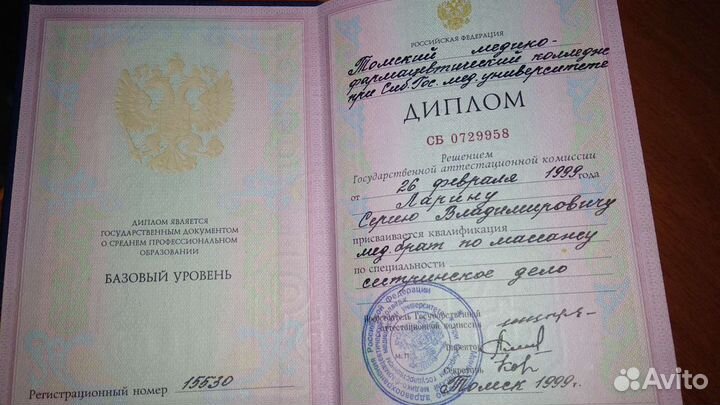 ДИПЛОМ ЯВЛЯЕТСЯ
ГОСУДАРСТВЕННЫМ ДОКУМЕНТОМ
О СРЕДНЕМ ПРОФЕССИОНАЛЬНОМ
ОБРАЗОВАНИИ
БАЗОВЫЙ УРОВЕНЬ
Регистрационный номер 15530
РОССИЙСКАЯ ФЕДЕРАЦИЯ
Томский медико-
фармацевтический колледж
при Сиб. Гос. мед. университете
ДИПЛОМ
СБ 0729958
Решением
Государственной аттестационной комиссии
от 26 февраля 1999 года
Ларину
Сергею Владимировичу
присваивается квалификация
мед. брат по массажу
по специальности
сестринское дело
Председатель Государственной
аттестационной комиссии
Директор
Секретарь
М.П.
Томск 1999г.
Avito